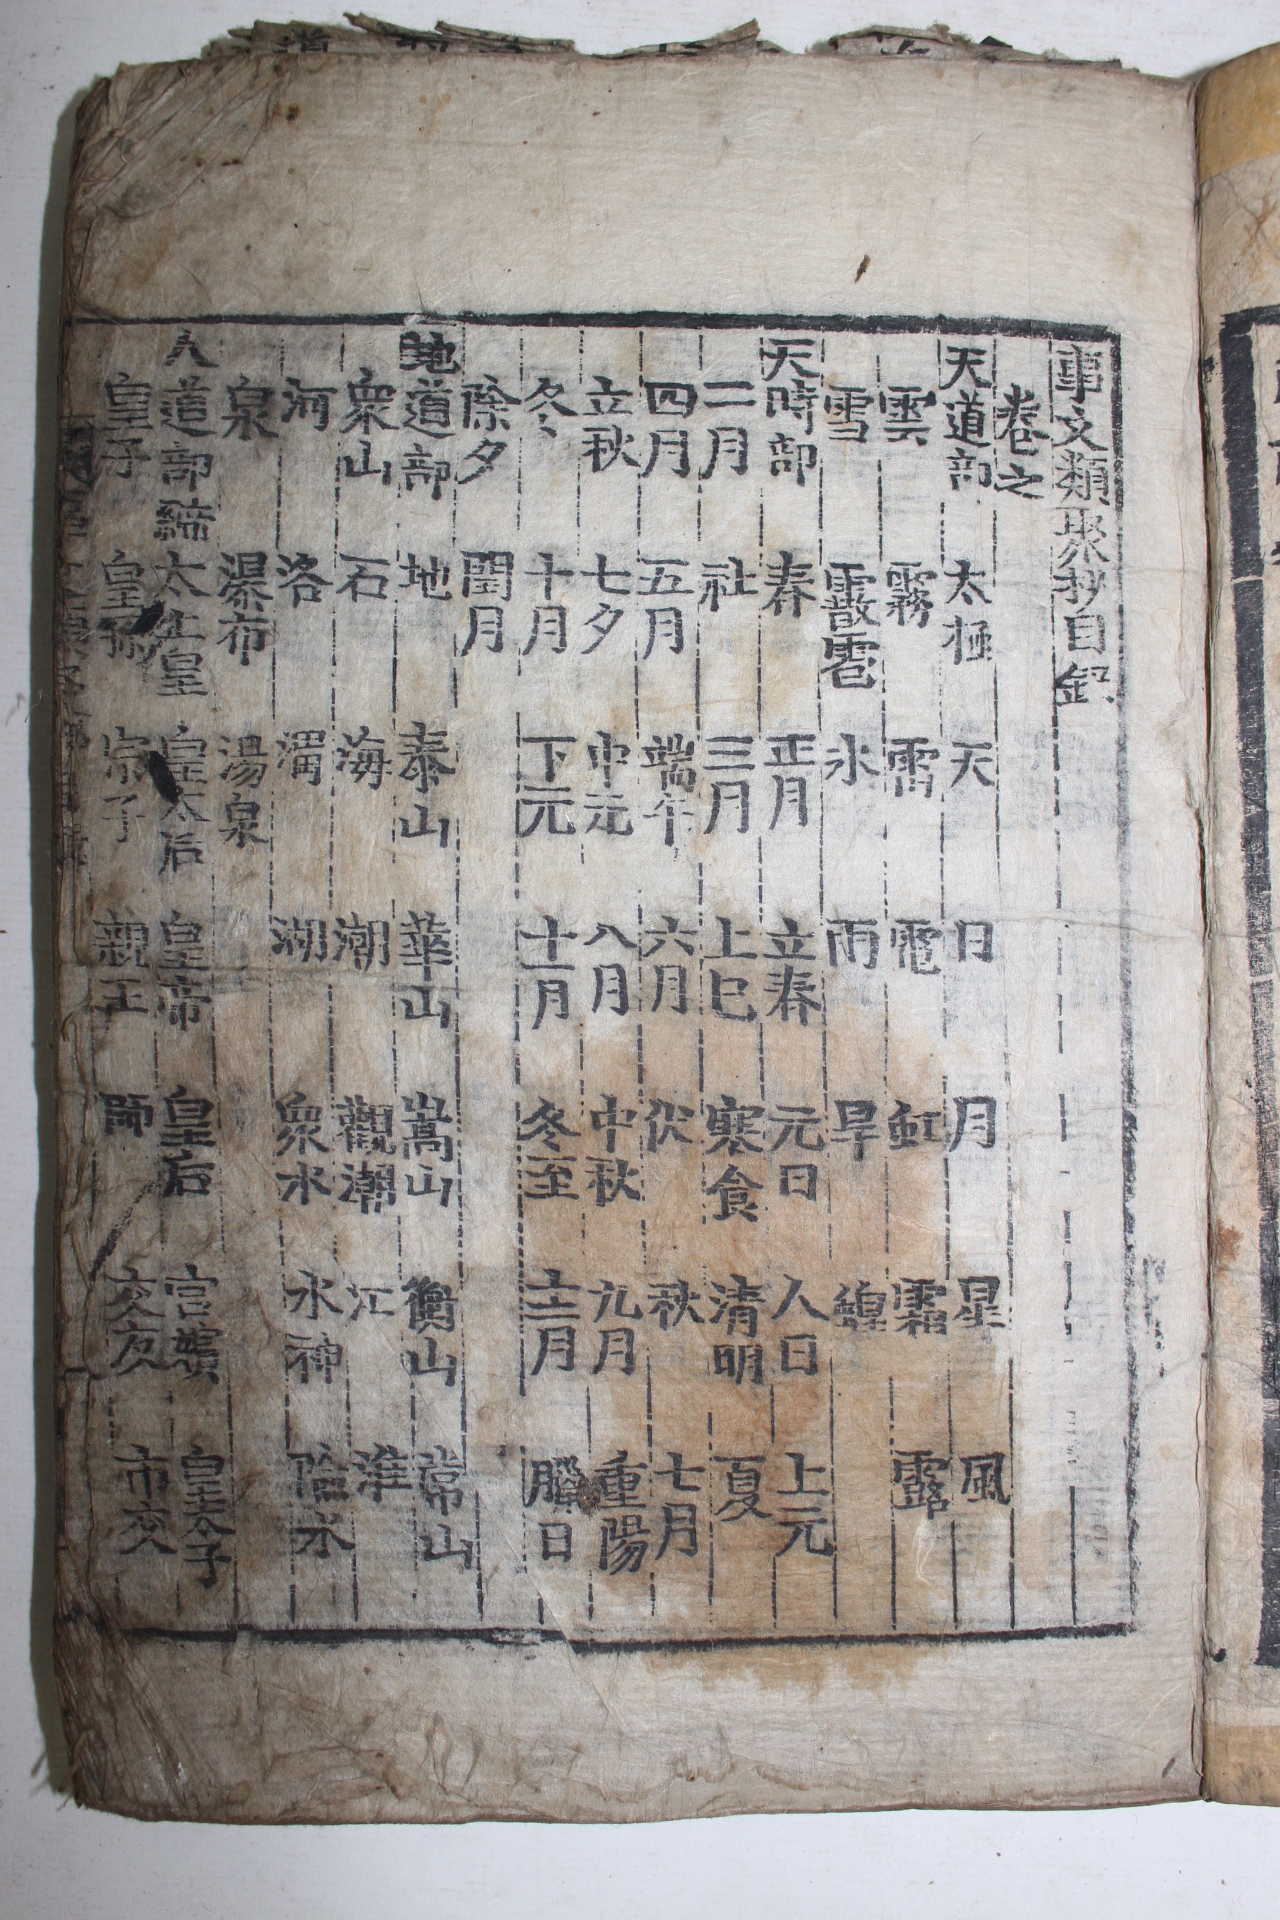 事文類聚抄目錄
卷之
天道部 太極 天 日 月 星 風
雲 霧 雷 電 虹 霜 露
雪 霰雹 氷 雨 旱 蝗
天時部 春 正月 立春 元日 人日 上元
二月 社 三月 上巳 寒食 清明 夏
四月 五月 端午 六月 伏 秋 七月
立秋 七夕 中元 八月 中秋 九月 重陽
冬 十月 下元 十一月 冬至 十二月 臘日
除夕 閏月
地道部 地 泰山 華山 嵩山 衡山 常山
衆山 石 海 潮 觀潮 江 淮
河 洛 湖 衆水 水神 水
泉 瀑布 湯泉
人道部 太上皇 皇太后 皇帝 皇后 宮嬪 皇太子
皇子 皇孫 宗子 親王 師 交友 市交